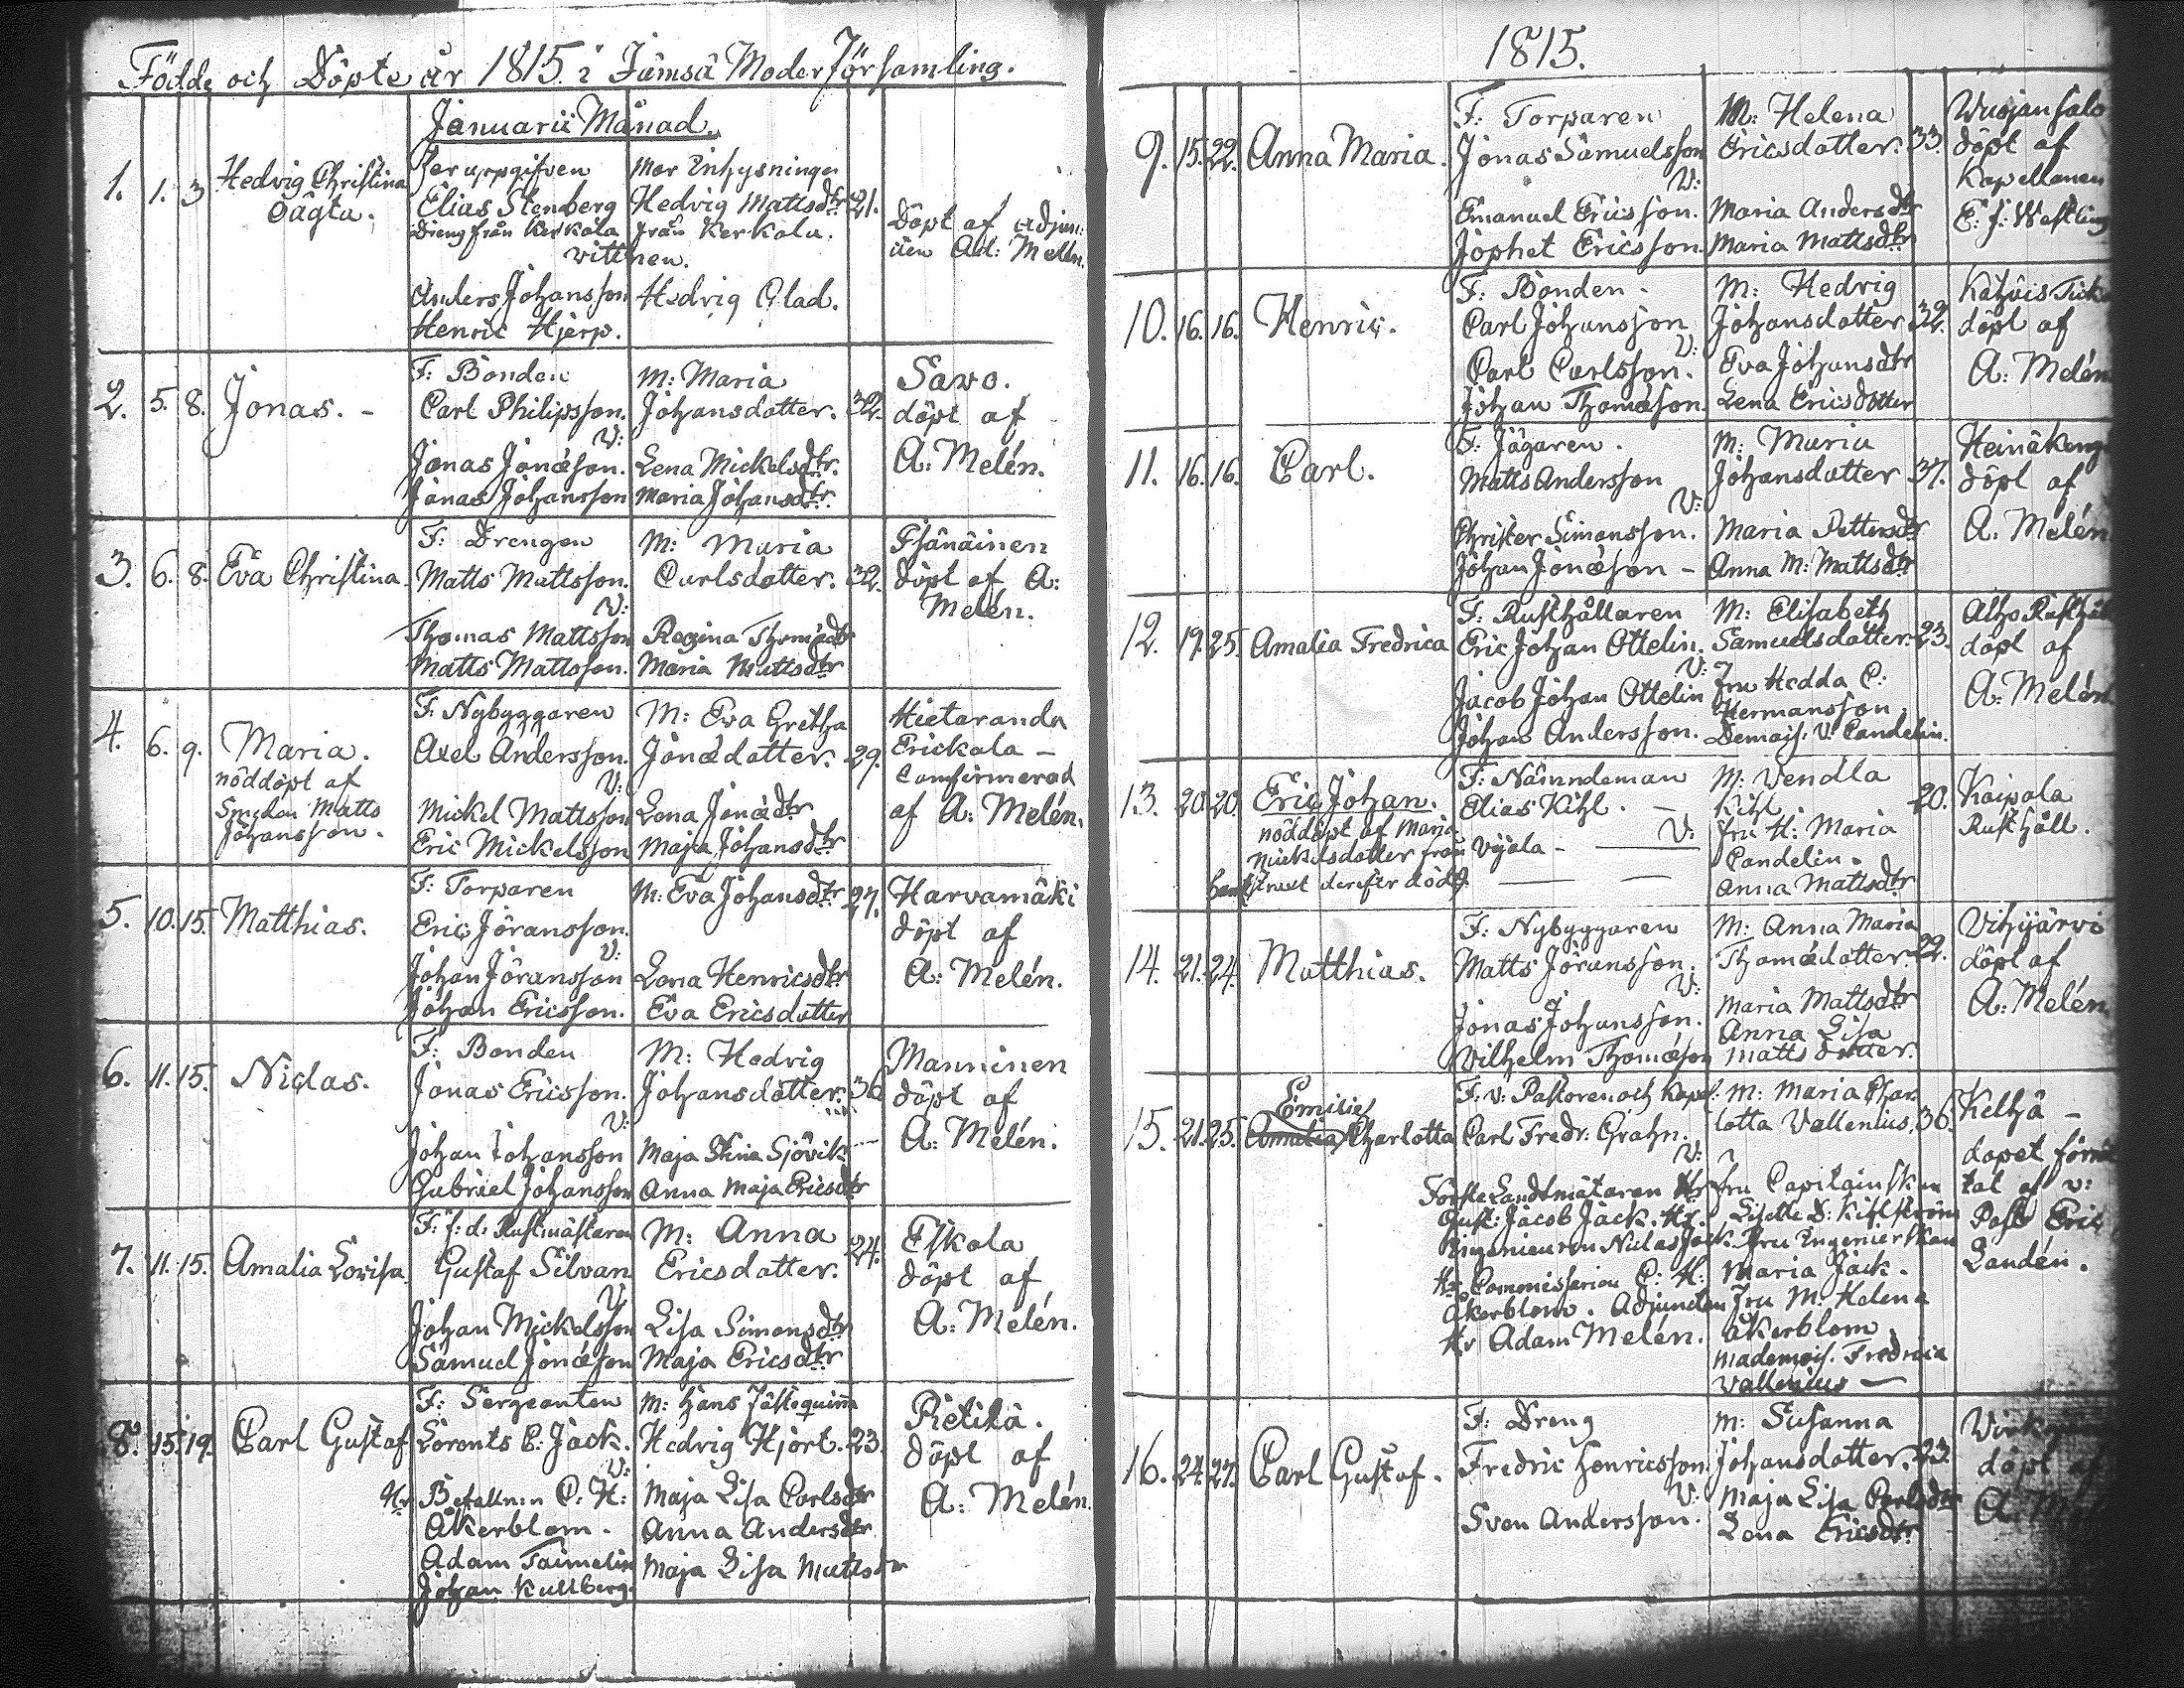 Födde och Döpte år 1815. i Jämsä Moder Församling.
Januarii Månad.
1. 1. 3 Hedvig Christina
oägta.
Far uppgifven
Elias Stenberg
Dreng från Kerkola
Mor Inhysninge
Hedvig Mattsdtr 21.
från Kerkola.
vittnen.
Anders Johansson Hedvig Glad.
Henric Hjerp.
Döpt af Adjun:
Ad: Melén.
2. 5. 8. Jonas. -
F: Bonden M: Maria
Carl Philipsson. Johansdotter. 32.
V:
Jonas Jonæson. Lena Mickelsdtr.
Jonas Johansson Maria Johansdtr.
Savo.
döpt af
A: Melén.
3. 6. 8. Eva Christina.
F: Drengen M: Maria
Matts Mattsson. Carlsdotter. 32.
V:
Thomas Mattsson Regina Thomædtr
Matts Mattsson. Maria Mattsdtr
döpt af A:
Melén.
4. 6. 9. Maria.
nöddöpt af
Smeden Matts
Johansson.
F: Nybyggaren M: Eva Gretha
Axel Andersson. Jonædotter. 29.
V:
Mickel Mattsson Lena Jonædtr
Eric Mickelsson Maja Johansdtr
Hietaranda
Erickala -
Comfirmerad
af A: Melén.
5. 10. 15. Matthias.
F: Torparen M: Eva Johansdtr 27.
Eric Jöransson.
V:
Johan Jöransson Lena Henricsdtr
Johan Ericsson. Eva Ericsdotter
Harvamäki
döpt af
A: Melén.
6. 11. 15. Niclas.
F: Bonden M: Hedvig
Jonas Ericsson. Johansdotter. 36
V:
Johan Johansson Maja Stina Sjövik
Gabriel Johansson Anna Maja Ericsdtr
Manninen
döpt af
A: Melén.
7. 11. 15. Amalia Lovisa.
F: f: d: Rustmästaren M: Anna
Gustaf Silvan Ericsdotter. 24.
V:
Johan Mickelsson Lisa Simonsdtr
Samuel Jonæson Maja Ericsdtr
Eskola
döpt af
A: Melén.
8. 15. 19. Carl Gustaf
F: Sergeanten M: Hans
Lorents C: Jack. Hedvig Hjort. 23.
V:
Hr Befallnn C: H: Maja Lisa Carlsdtr
Åkerblom. Anna Andersdtr
Adam Taimelin Maja Lisa Mattsdtr
Johan Kullberg.
Pietilä.
döpt af
A: Melén.
1815.
9. 15. 22. Anna Maria.
F: Torparen M: Helena
Jonas Samuelsson Ericsdotter. 33.
V:
Emanuel Ericsson. Maria Andersdtr
Japhet Ericsson. Maria Mattsdtr
döpt af
Kapellanen
E: J: Westling
10. 16. 16. Henric.
F: Bonden. M: Hedvig
Carl Johansson Johansdotter. 32.
V:
Carl Carlsson. Eva Johansdtr
Johan Thomæson. Lena Ericsdotter
döpt af
A: Melén
11. 16. 16. Carl.
F: Jägaren. M: Maria
Matts Andersson Johansdotter 37.
V:
Christer Simonsson. Maria Pettersdtr
Johan Jonæson - Anna M: Mattsdtr
döpt af
A: Melén
12. 19. 25. Amalia Fredrica
F: Rusthållaren M: Elisabeth
Eric Johan Ottelin. Samuelsdotter. 23.
V:
Jacob Johan Ottelin Fru Hedda C.
Hermansson
Johan Andersson. Demois: V: Candelin.
döpt af
A: Melén
13. 20. 20. Eric Johan.
nöddöpt af Maria
Mickelsdotter från
derefter död.
F: Nämndeman M: Vendla
Elias Kihl. - Kihl 20.
V:
Fru H: Maria
Candelin.
Anna Mattsdtr
Kaipola
Rusthåll.
14. 21. 24. Matthias.
F: Nybyggaren M: Anna Maria
Matts Jöransson. Thomædotter. 22.
V:
Jonas Johansson. Maria Mattsdtr
Anna Lisa
Vilhelm Thomæson Matts dotter.
Vihijärvi
döpt af
A: Melén
15. 21. 25. Emilie
Amalia Charlotta
F: v: Pastoren och Kapel: M: Maria Char
Carl Fredr: Grahn. lotta Vallenius. 36.
V:
Förste Landtmätaren Hr Fru Capitainskan
Gust: Jacob Jack. Hr. Lisette D: Kihlström
Ringenieuren Niclas Jack. Fru Ingenierskan
Maria Jack.
Hr Commissarien C: H:
Åkerblom. Adjuncten Fru M: Helena
Hr Adam Melén. Åkerblom
Mademois. Fredrica
Vallenius -
Kelhä -
dopet förrät
tat af v:
Past: Eric
Landén.
16. 24. 27. Carl Gustaf.
F: Dreng M: Susanna
Fredric Henricsson Johansdotter. 23.
V:
Maja Lisa Carlsdtr
Sven Andersson. Lena Ericsdtr
döpt af